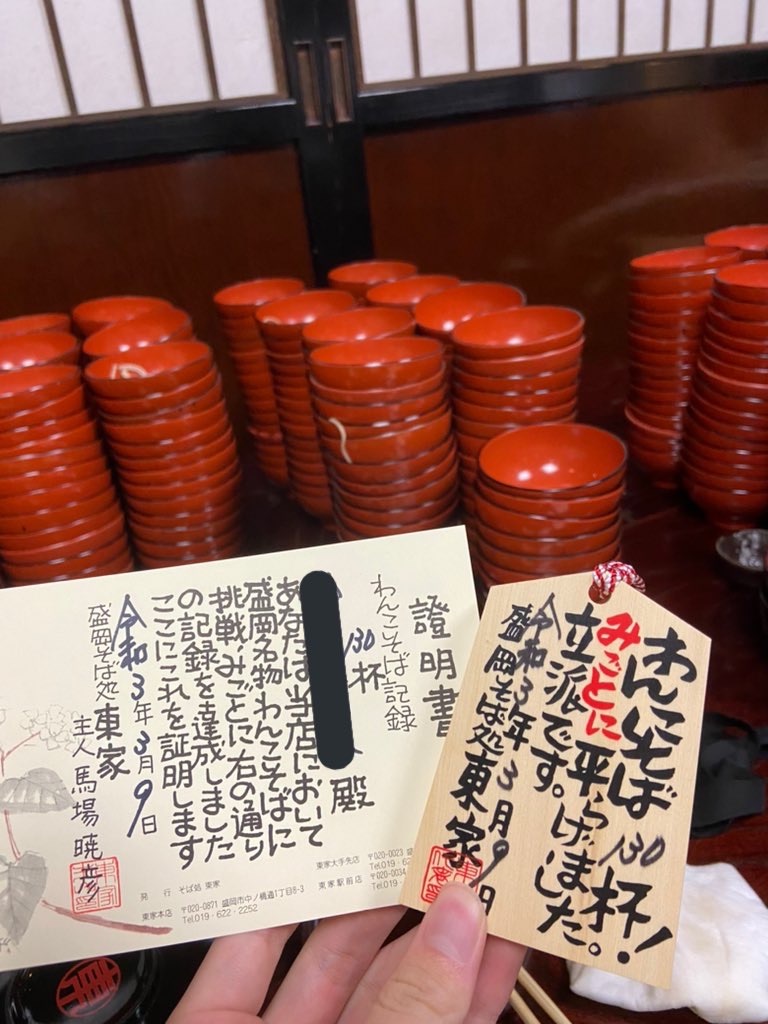 證明書
わんこそば記録
130杯
殿
あなたは当店において
盛岡名物わんこそばに
挑戦みごとに右の通り
の記録を達成しました
ここにこれを証明します
令和3年3月9日
盛岡そば処東家
主人 馬場暁彦
発行 そば処 東家
東家本店 〒020-0871 盛岡市中ノ橋通1丁目8-3
Tel.019・622・2252
東家大手先店 〒020-0023
Tel.019・62
東家駅前店 〒020-0034
Tel.019
わんこそば130杯!
みごとに平らげました。
立派です。
令和3年3月9日
盛岡そば処東家